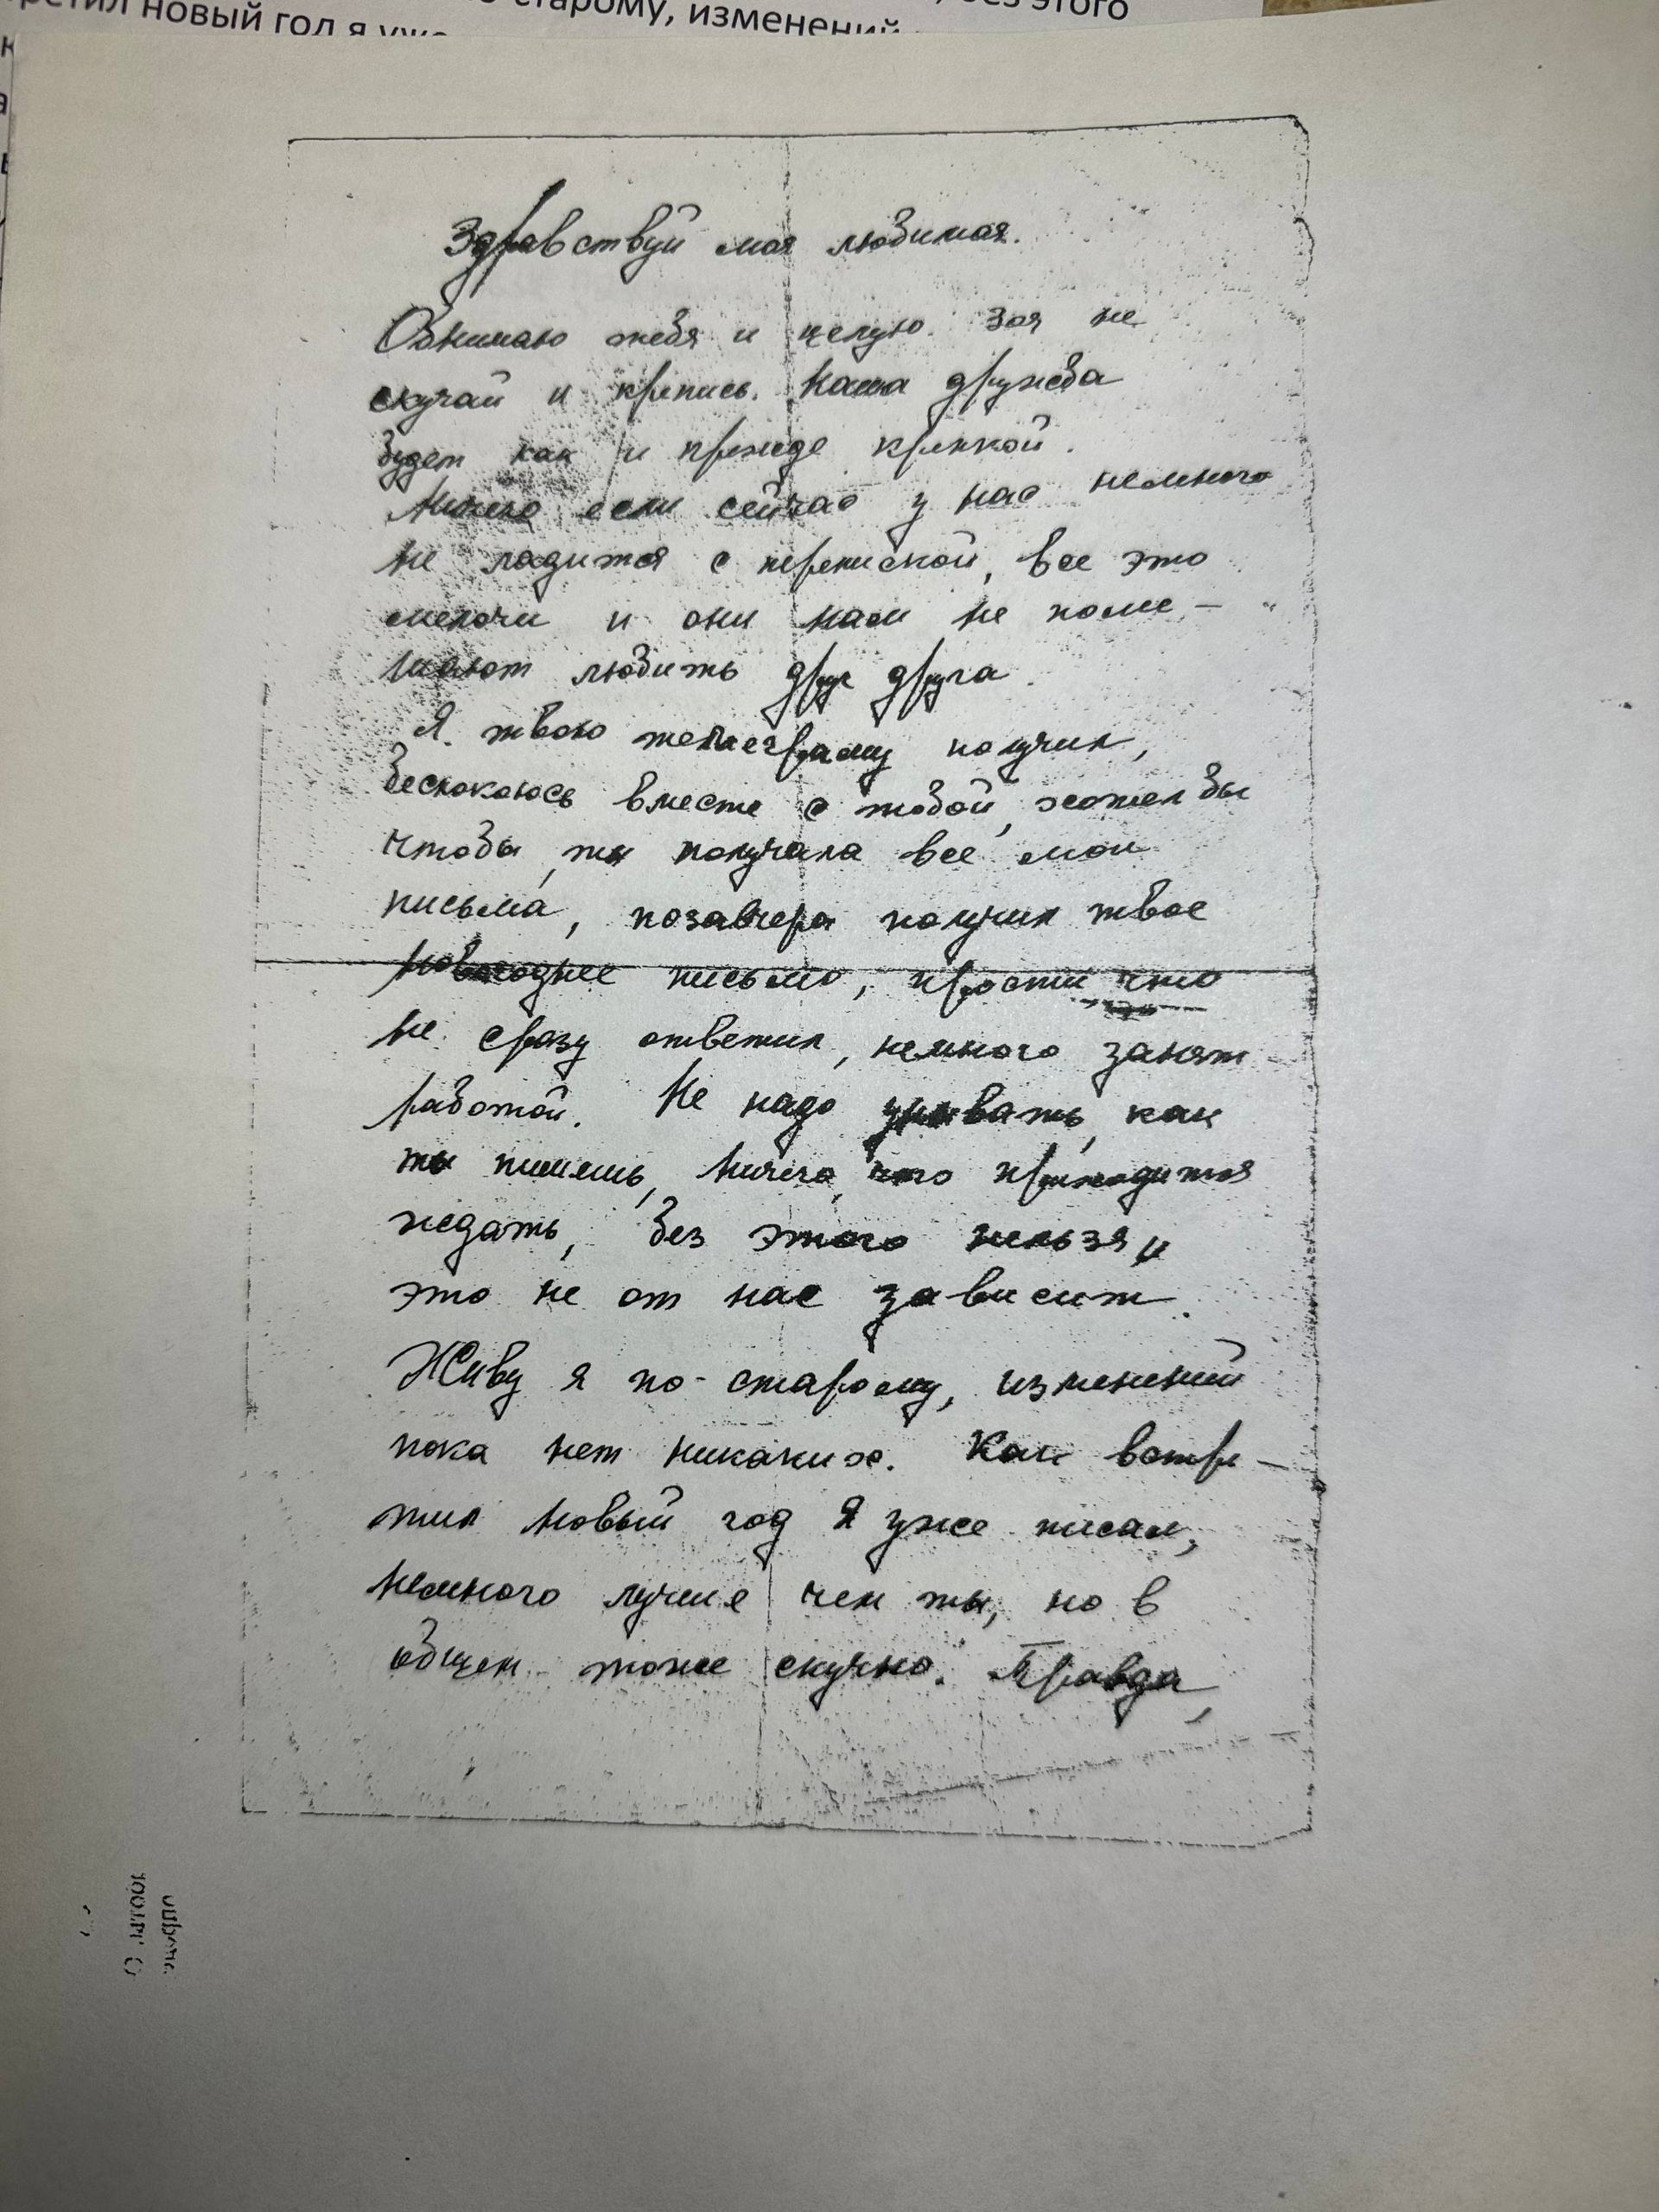 старому, изменений
этого
ретил новый год я уже
Здравствуй моя любимая.
Обнимаю тебя и целую. Зоя не
скучай и крепись. Наша дружба
будет как и прежде крепкой.
Ничего если сейчас у нас немного
не ладится с перепиской, все это
мелочи и они нам не поме-
шают любить друг друга.
Я твою телеграму получил,
беспокоюсь вместе с тобой, хотел бы
чтобы ты получала все мои
письма, позавчера получил твое
новогоднее письмо, прости что
не сразу ответил, немного занят
работой. Не надо унывать, как
ты пишешь, ничего, что приходится
ждать, без этого нельзя и
это не от нас зависит.
Живу я по-старому, изменений
пока нет никаких. Как встре-
тил новый год я уже писал,
немного лучше чем ты, но в
общем тоже скучно. Правда,